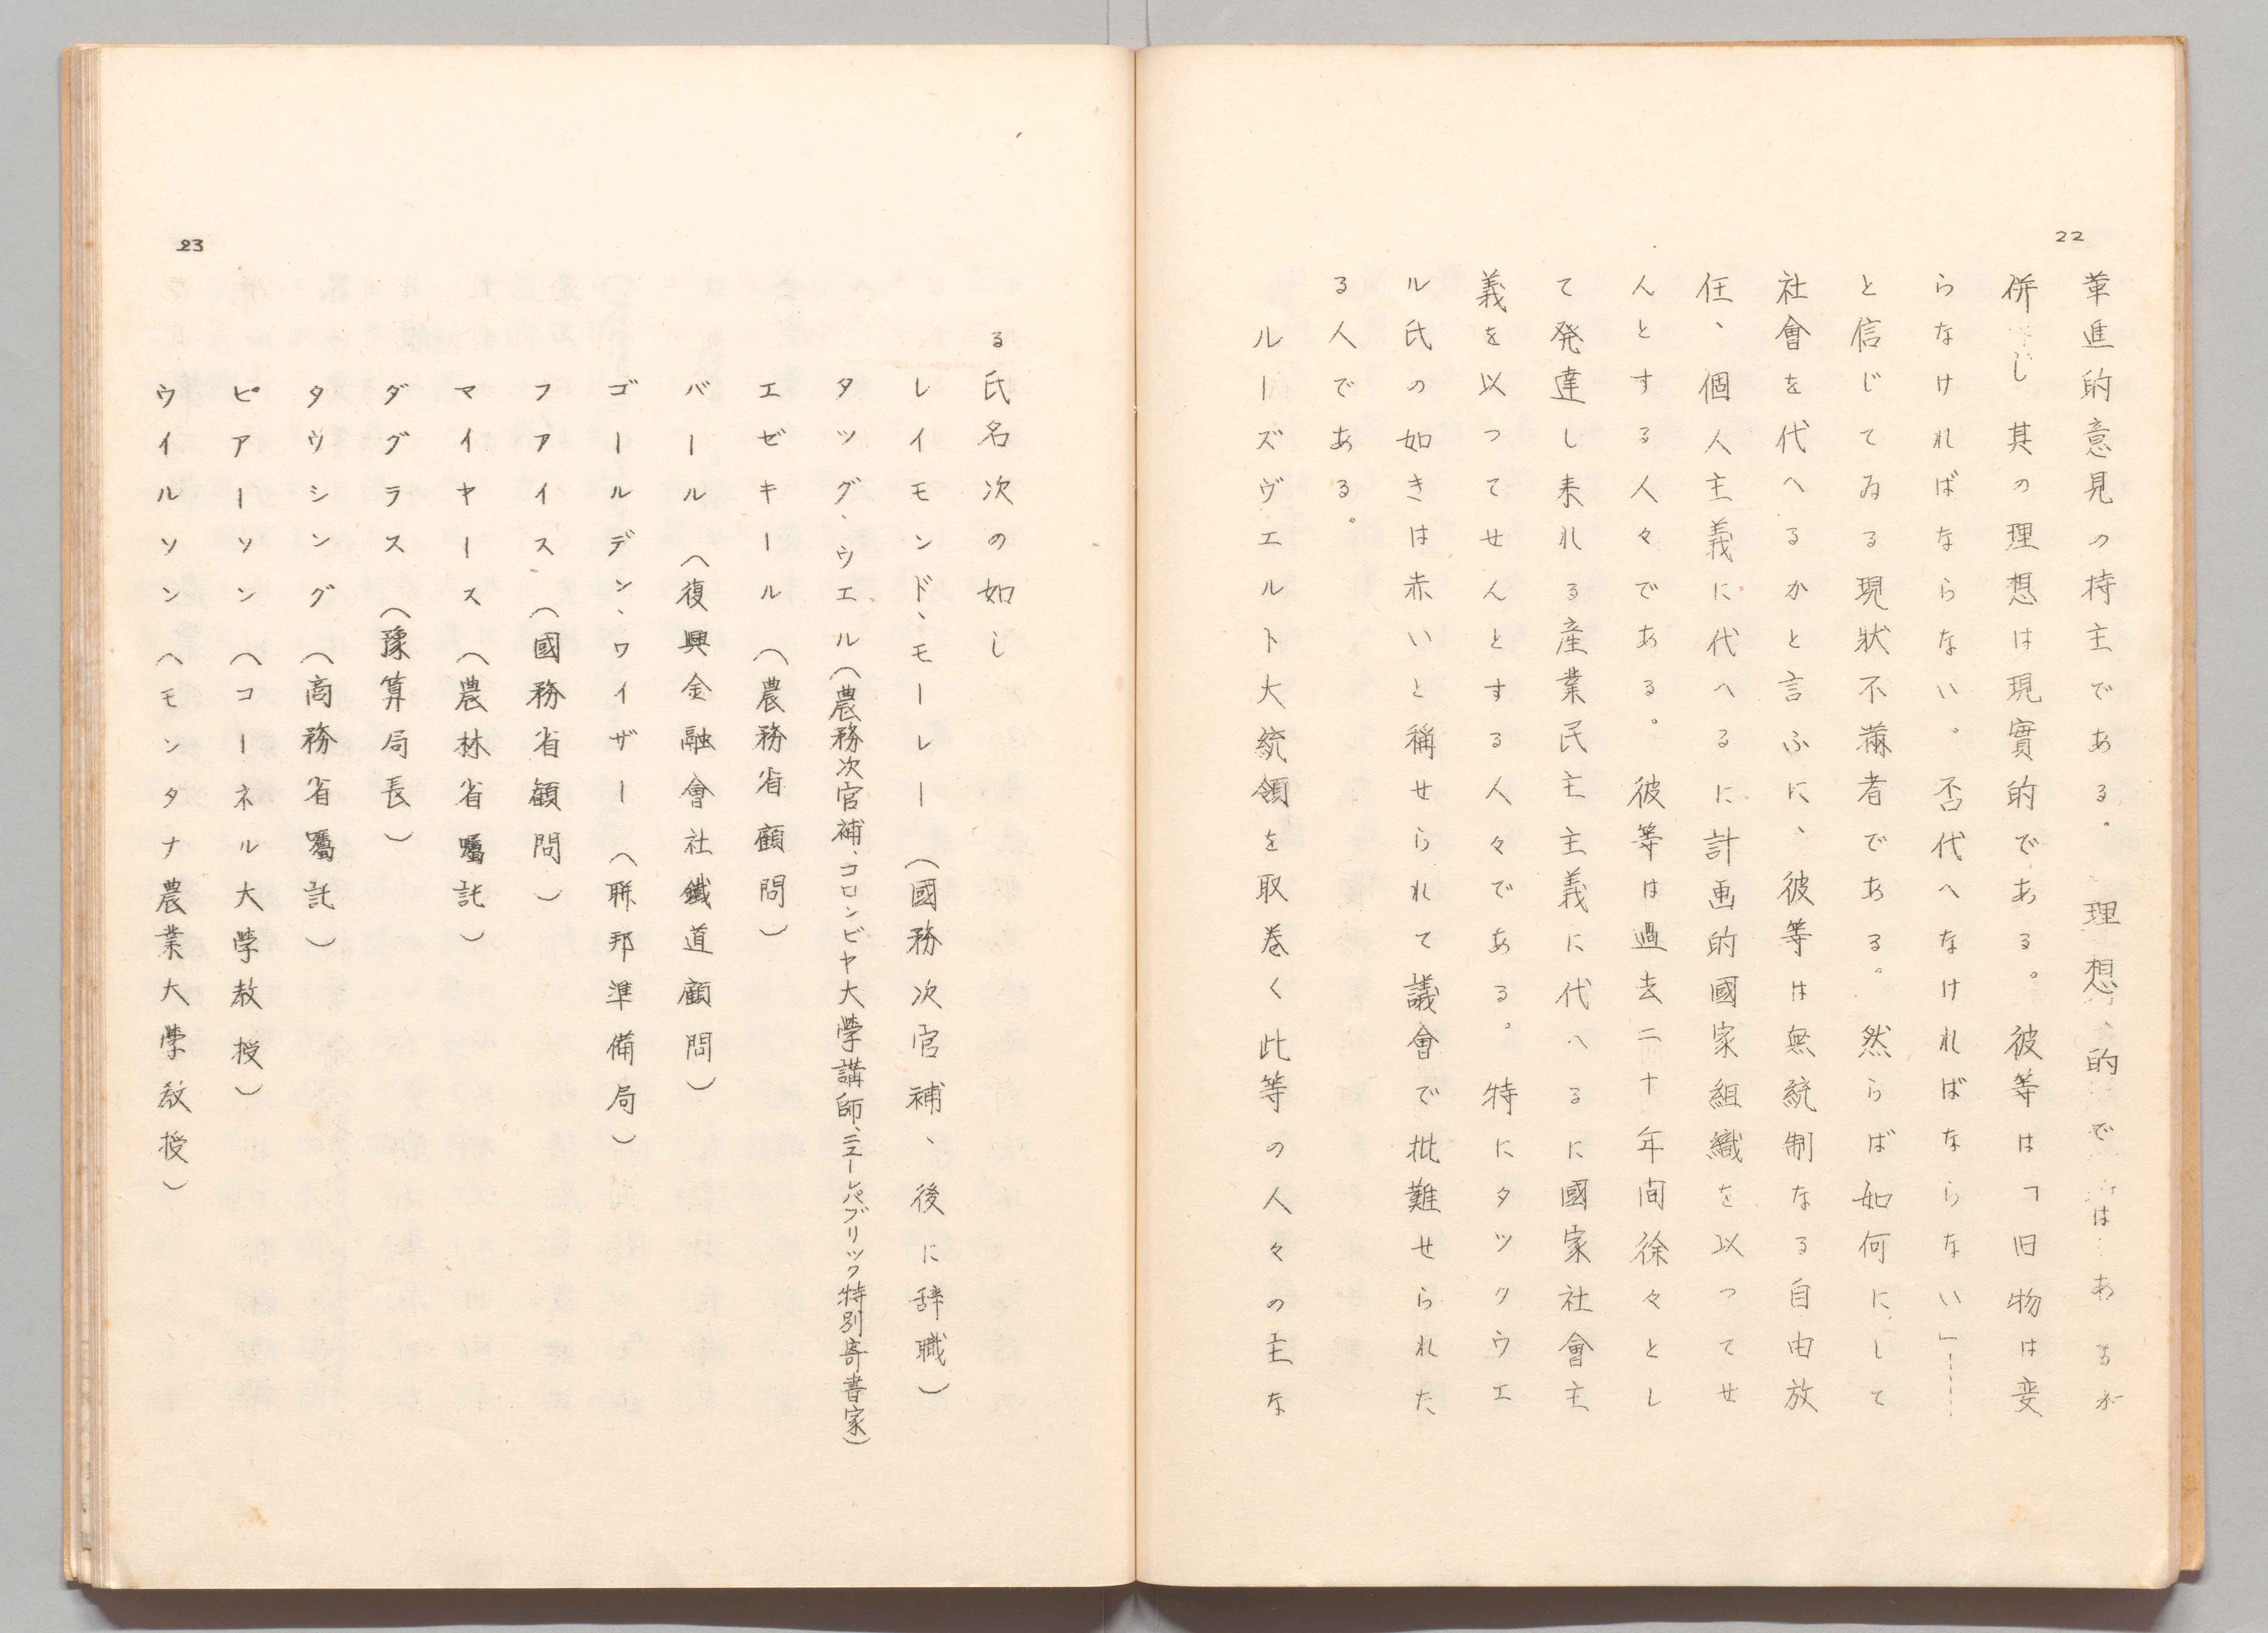 22
革進的意見の持主である。理想的ではあるが
併し其の理想は現實的である。彼等は「旧物は変
らなければならない。否代へなければならない」……
と信じてゐる現狀不満者である。然らば如何にして
社會を代へるかと言ふに、彼等は無統制なる自由放
任、個人主義に代へるに計画的國家組織を以つてせ
んとする人々である。彼等は過去二十年間徐々とし
て発達し来れる産業民主主義に代へるに國家社會主
義を以つてせんとする人々である。特にタツクウエ
ル氏の如きは赤いと稱せられて議會で批難せられた
る人である。
ルーズヴエルト大統領を取巻く此等の人々の主な
23
る氏名次の如し
レイモンド、モーレー（國務次官補、後に辞職）
タツグ、ウエル（農務次官補、コロンビヤ大學講師、ニューレパブリック特別寄書家）
エゼキール（農務省顧問）
バール（復興金融會社鐵道顧問）
ゴールデン、ワイザー（聯邦準備局）
フアイス（國務省顧問）
マイヤース（農林省囑託）
ダグラス（豫算局長）
タウシング（商務省囑託）
ピアーソン（コーネル大學教授）
ウイルソン（モンタナ農業大學教授）